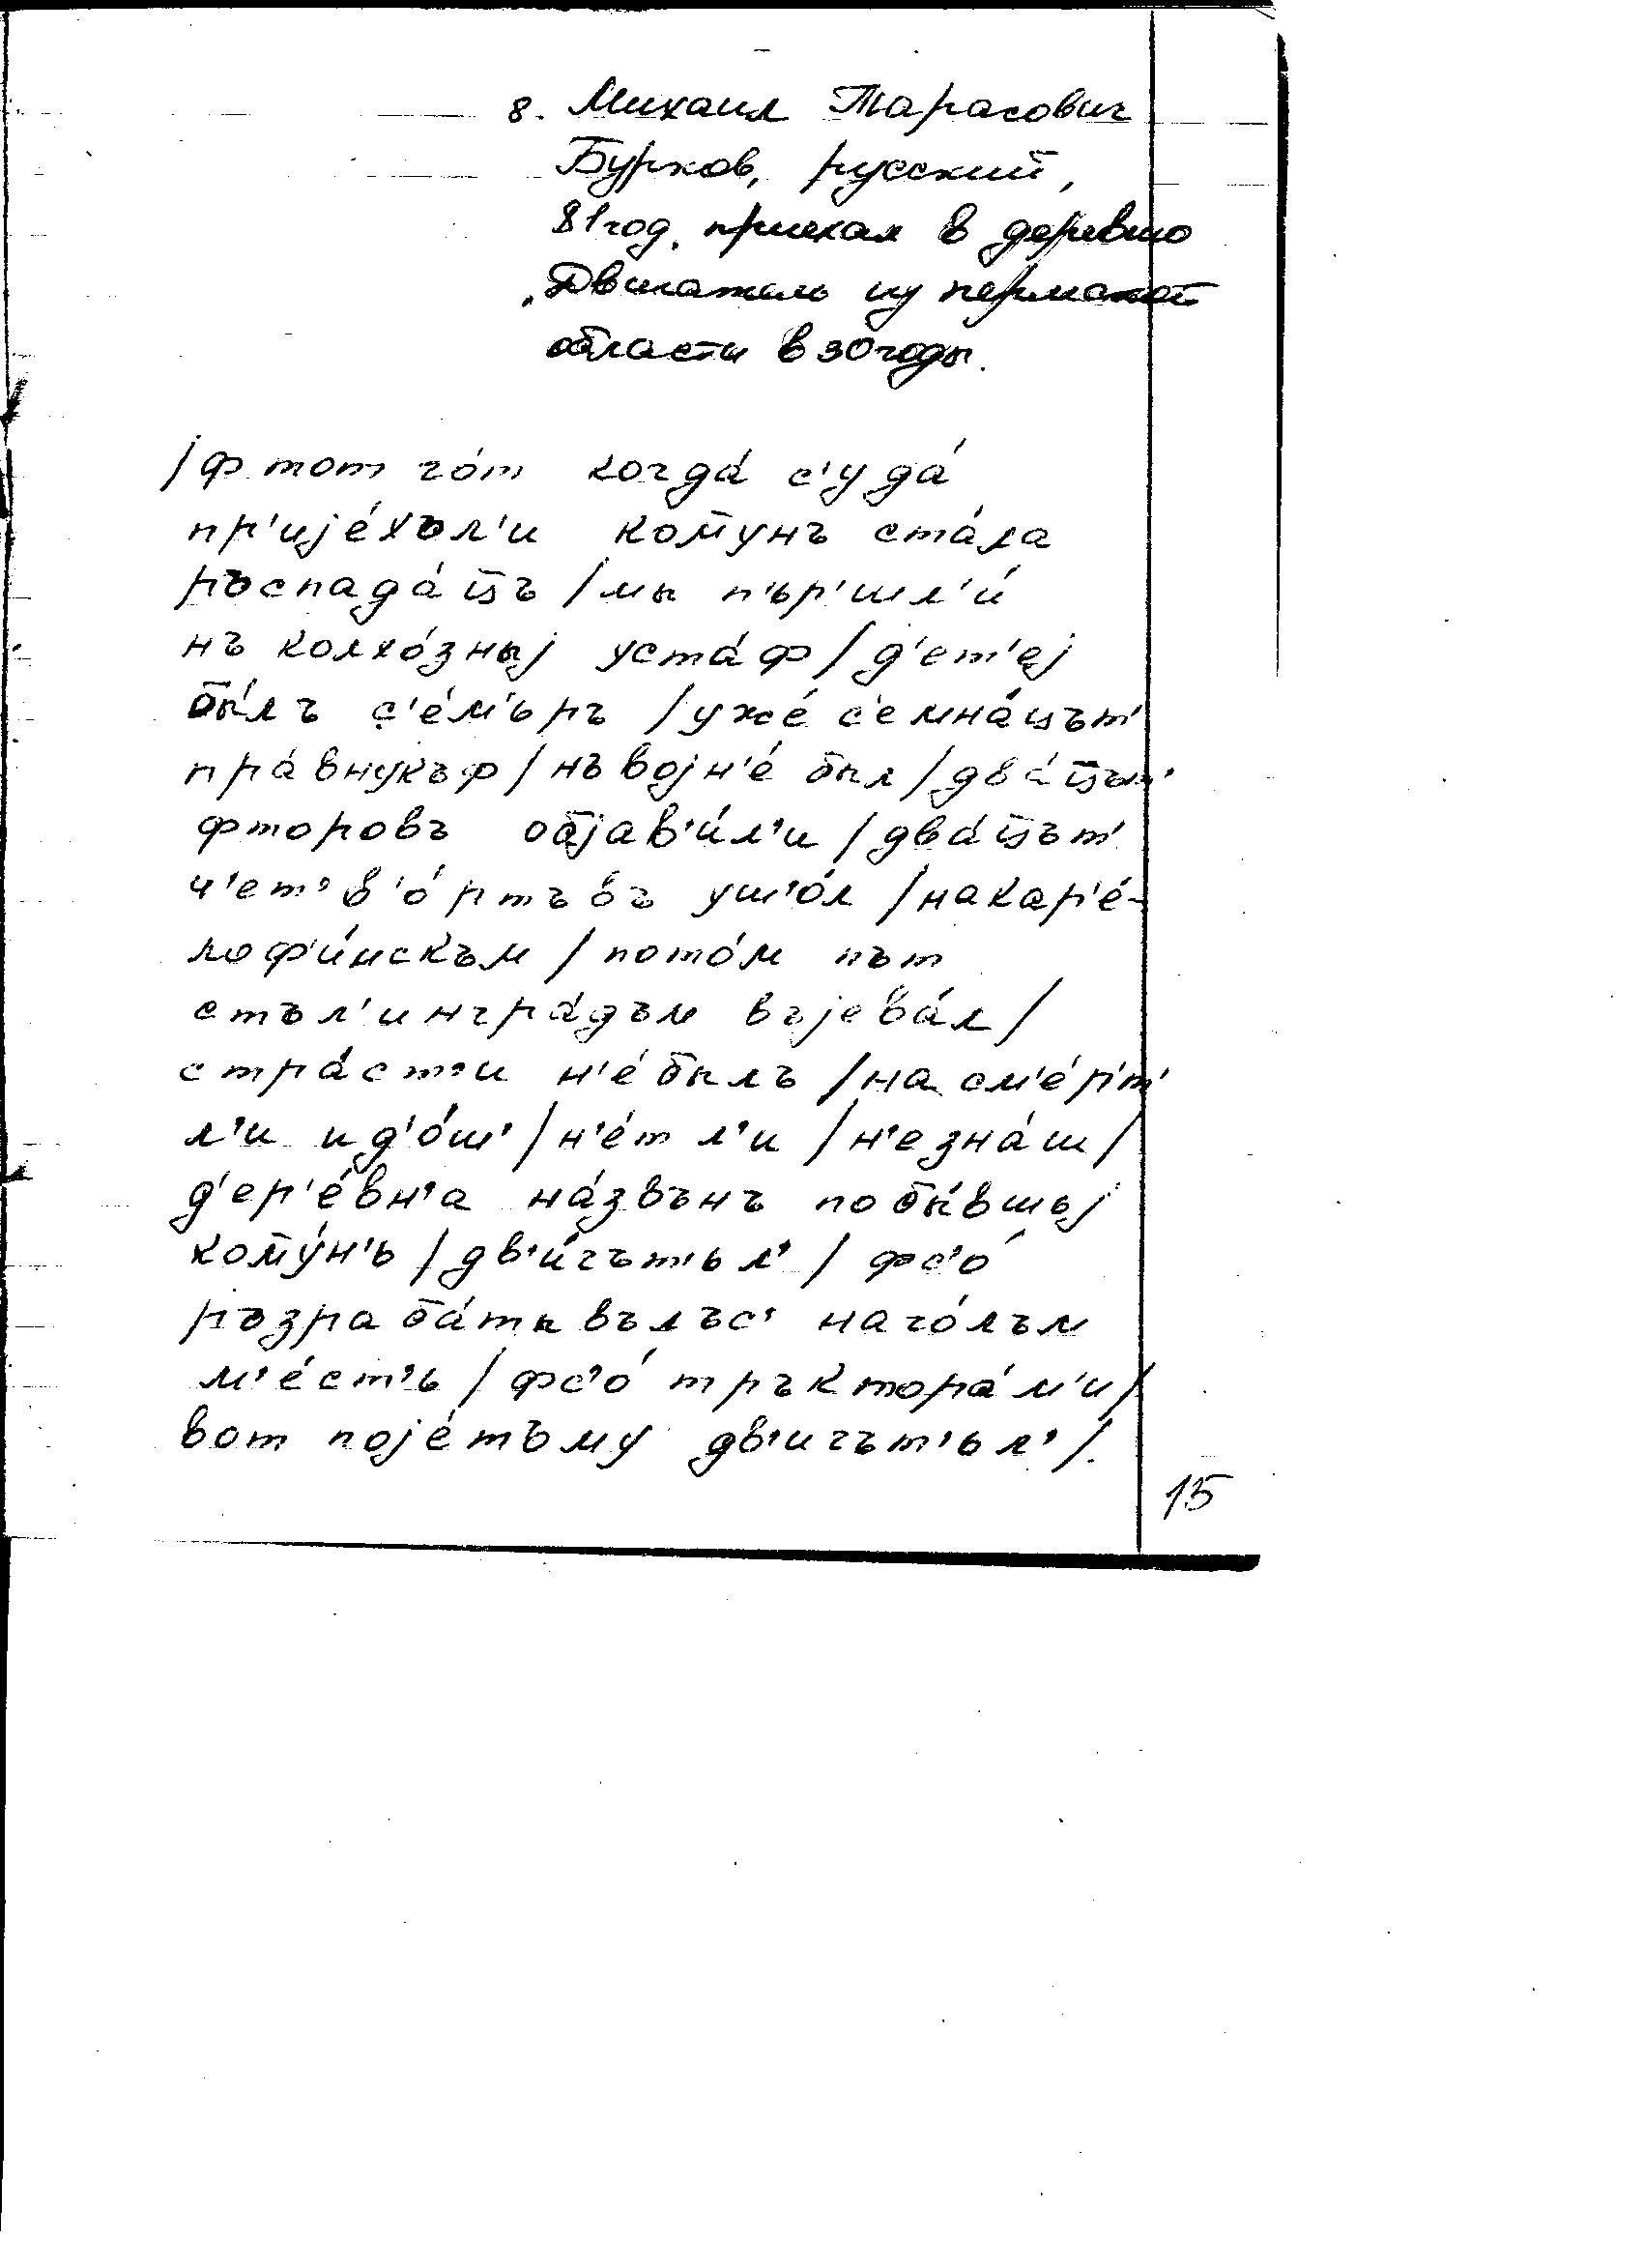 8. Михаил Тарасович
Бурков, русский,
81 год, приехал в деревню
Двигатель из пермской
области в 30 годы.
/ф тот го́т когда́ с'уда́
пр'ијéхъл'и ком̅унъ ста́ла
ръспада́ц̅ъ /мы п'ър'шл'и́
нъ колхо́зныј уста́ф / д'ет'еј
бы́лъ с'е́м'ьръ /уже́ с'емна́цът'
пра́внукъф / нъ војн'е́ был / два́ц̅ът'
фторовъ објав'и́л'и / два́ц̅ът'
ч'ет'в'о́ртъвъ уш'о́л /на кар'е́-
лоф'и́нскъм / пото́м път
стъл'ингра́дъм въјева́л /
стра́ст'и н'е́ былъ /на см'е́р'т'
л'и ид'о́ш' / н'е́т л'и / н'е зна́ш /
д'ер'е́вн'а на́звънъ по бы́вшъј
ком̅у́н'ь / дв'и́гът'ьл' / фс'о́
ръзраба́тывълъс' на го́лъм
м'е́ст'ь / фс'о́ тръктора́м'и /
вот појéтъму дв'игът'ьл' /.
15